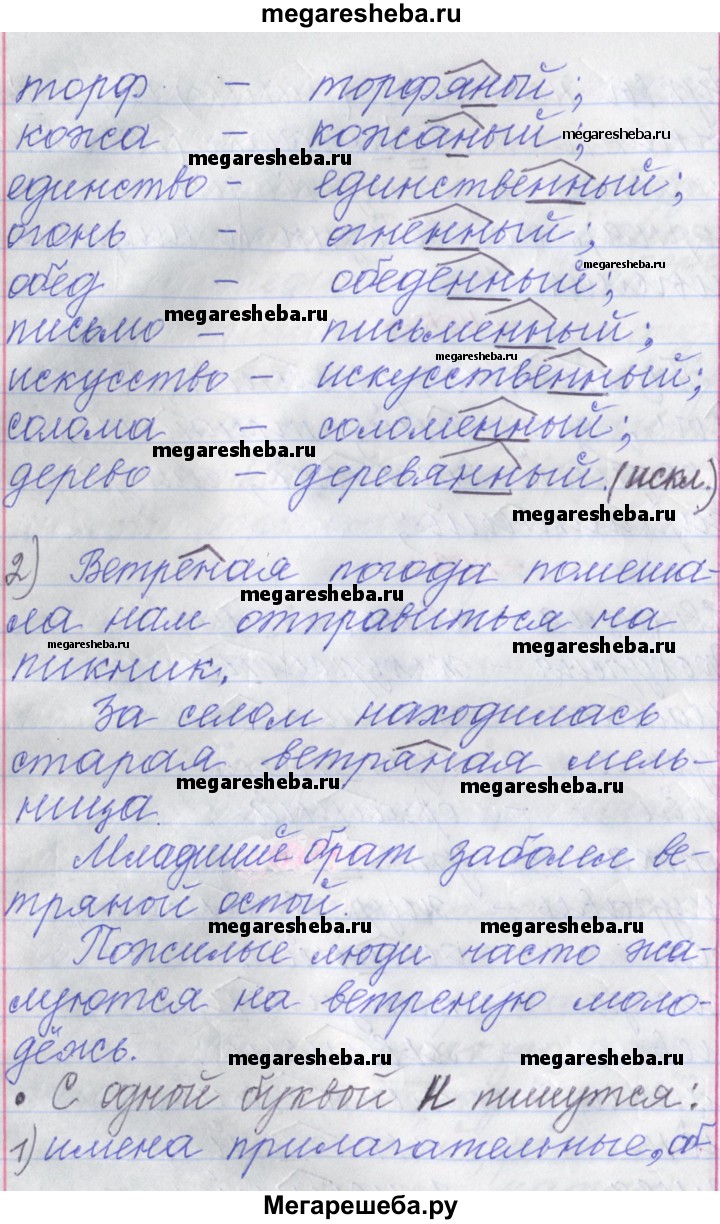 megaresheba.ru
торф – торфяной;
кожа – кожаный;
megaresheba.ru
megaresheba.ru
единство – единственный;
огонь – огненный;
обед – обеденный;
megaresheba.ru
megaresheba.ru
письмо – письменный;
megaresheba.ru
искусство – искусственный;
солома – соломенный;
megaresheba.ru
дерево – деревянный. (искл.)
megaresheba.ru
2) Ветреная погода помеша-
megaresheba.ru
ла нам отправиться на
megaresheba.ru
megaresheba.ru
пикник.
За селом находилась
старая ветряная мель-
megaresheba.ru
megaresheba.ru
ница.
Младший брат заболел ве-
тряной оспой.
megaresheba.ru
megaresheba.ru
Пожилые люди часто жа-
луются на ветреную моло-
дёжь.
megaresheba.ru
megaresheba.ru
• С одной буквой Н пишутся:
1) имена прилагательные, об-
Мегарешеба.ру